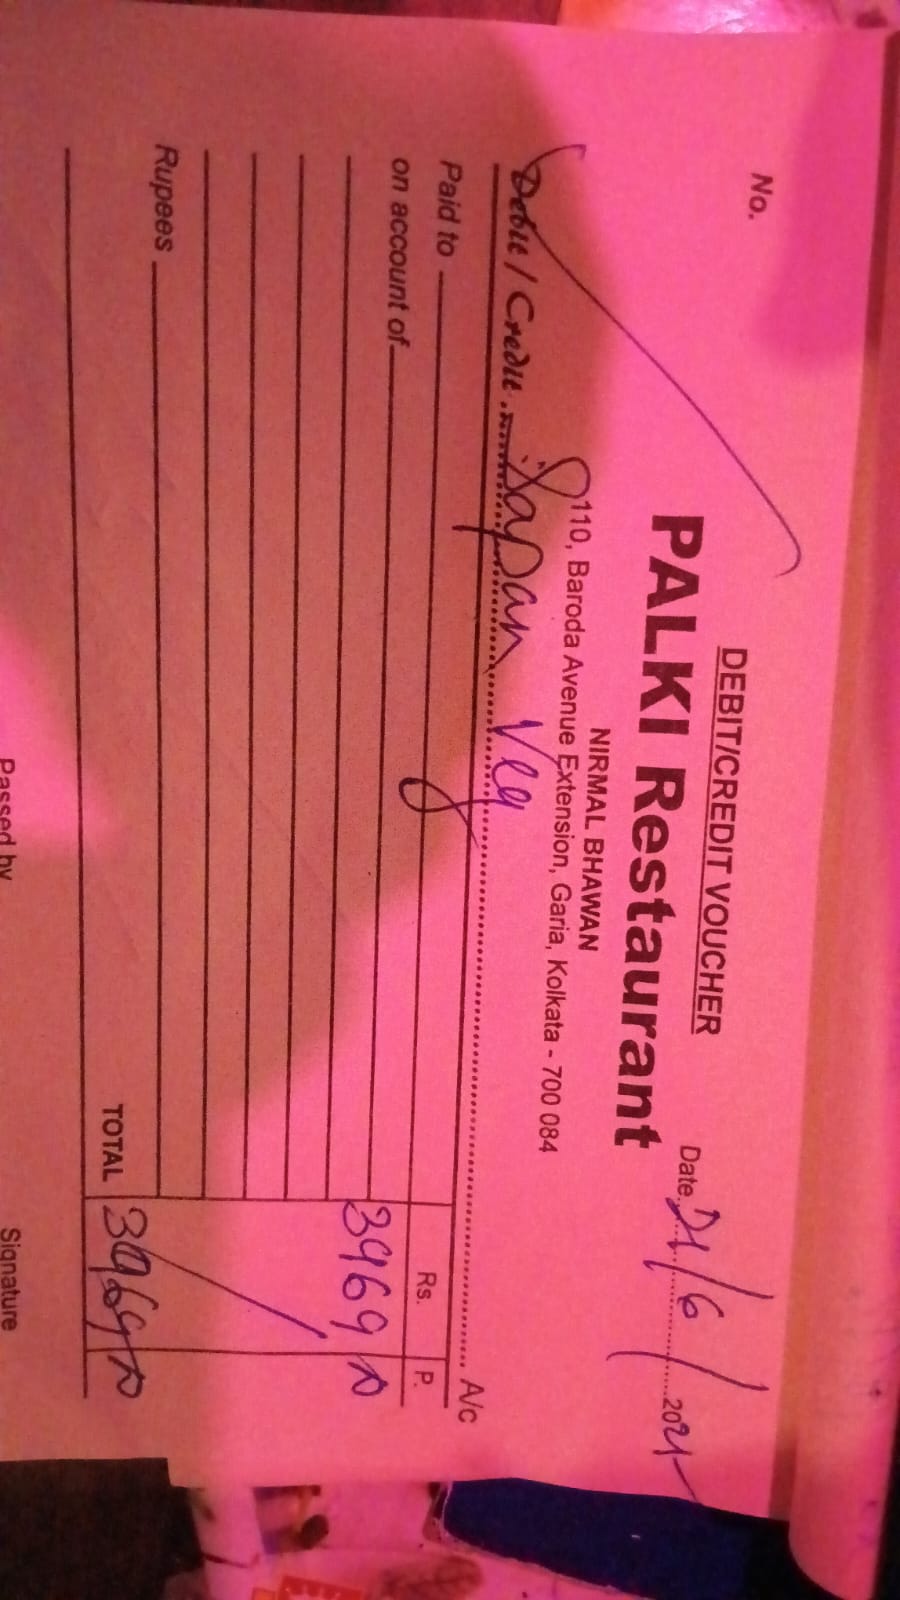 DEBIT/CREDIT VOUCHER
No.
Date 21/6/2021
PALKI Restaurant
NIRMAL BHAWAN
110, Baroda Avenue Extension, Garia, Kolkata - 700 084
Debit / Credit Sapan Veg A/c
Paid to
Rs. P.
on account of
3969
Rupees
TOTAL 3969
Passed by
Signature